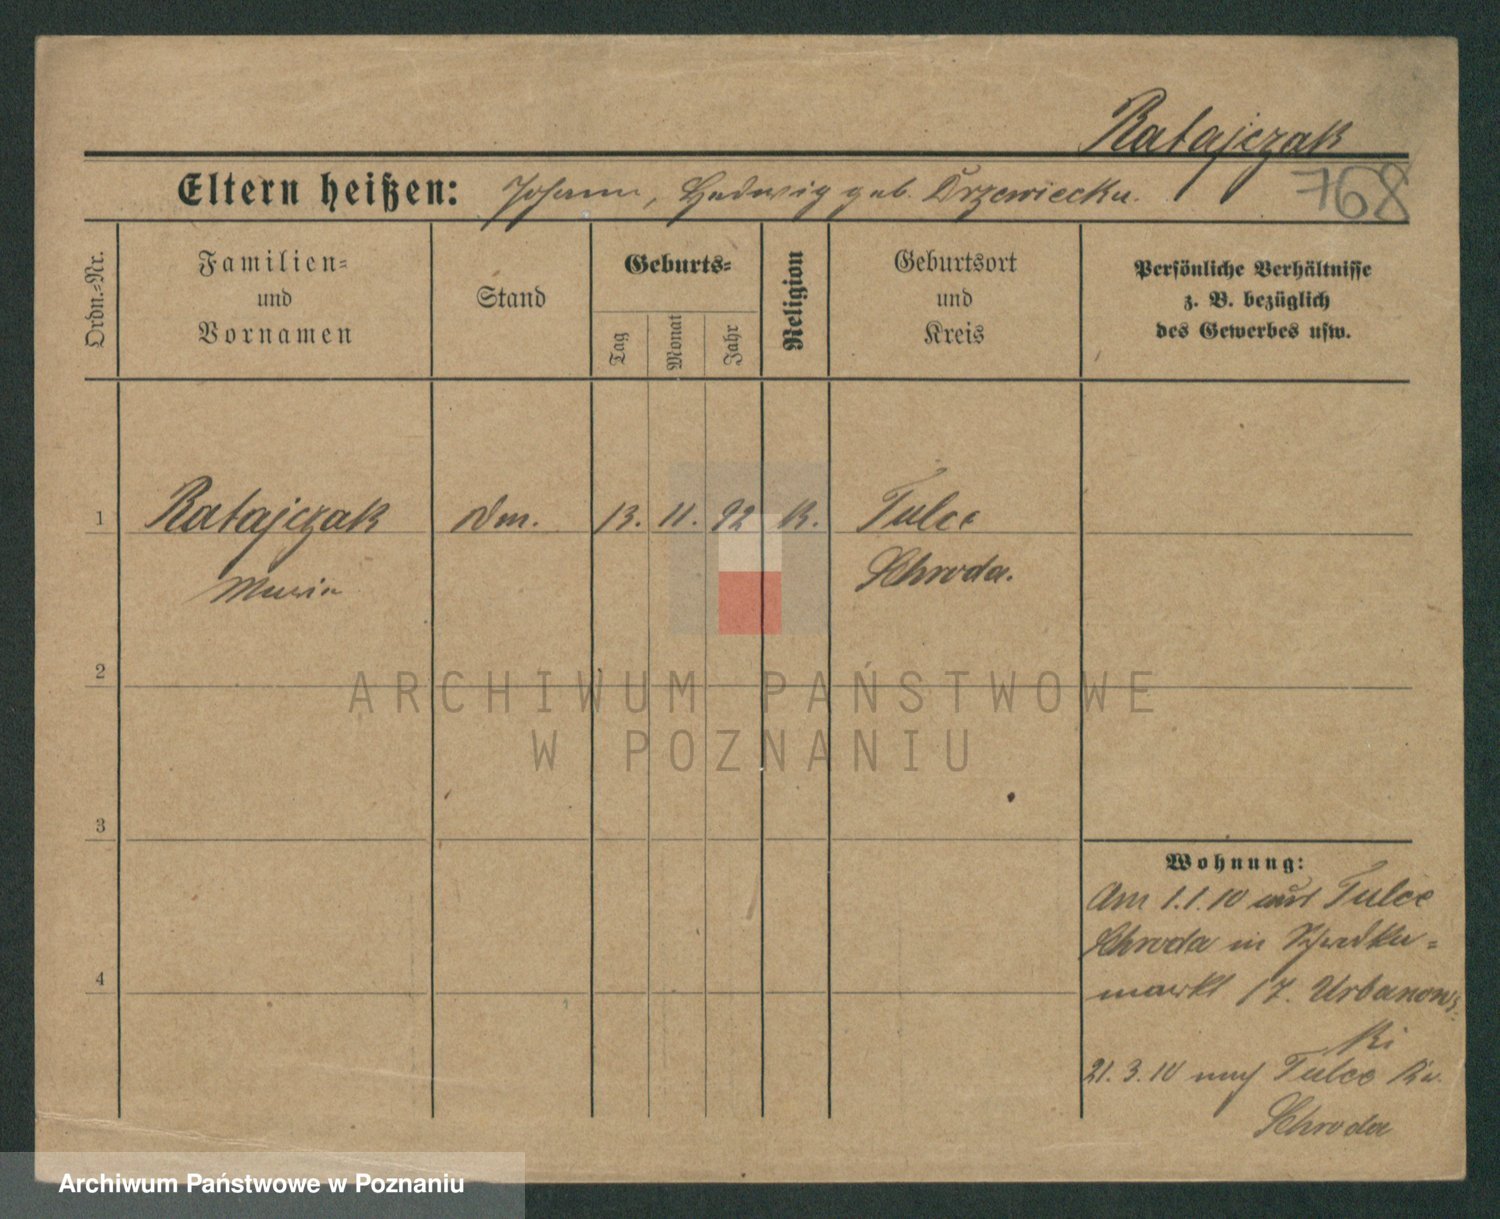 Ratajczak
768
Eltern heißen: Johann, Hedwig geb. Drzewiecka.
Ordn.-Nr.
Familien-
und
Vornamen
Stand
Geburts-
Tag
Monat
Jahr
Religion
Geburtsort
und
Kreis
Persönliche Verhältnisse
z. B. bezüglich
des Gewerbes usw.
1 Ratajczak 13. 11. 92 K. Tulce
Maria Schroda.
2
ARCHIWUM PAŃSTWOWE
W POZNANIU
3
Wohnung:
Am 1.1.10 aus Tulce
Schroda in
markt 17. Urbanows-
ki
4
21.3.10 nach Tulce Kr.
Schroda
Archiwum Państwowe w Poznaniu